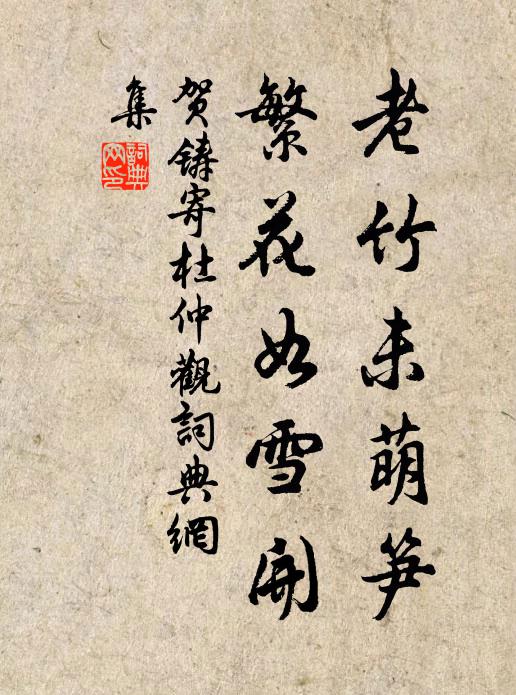 老竹未萌笋
繁花如雪開
贺鑄寄杜仲觀詞典網
集
詞典網印